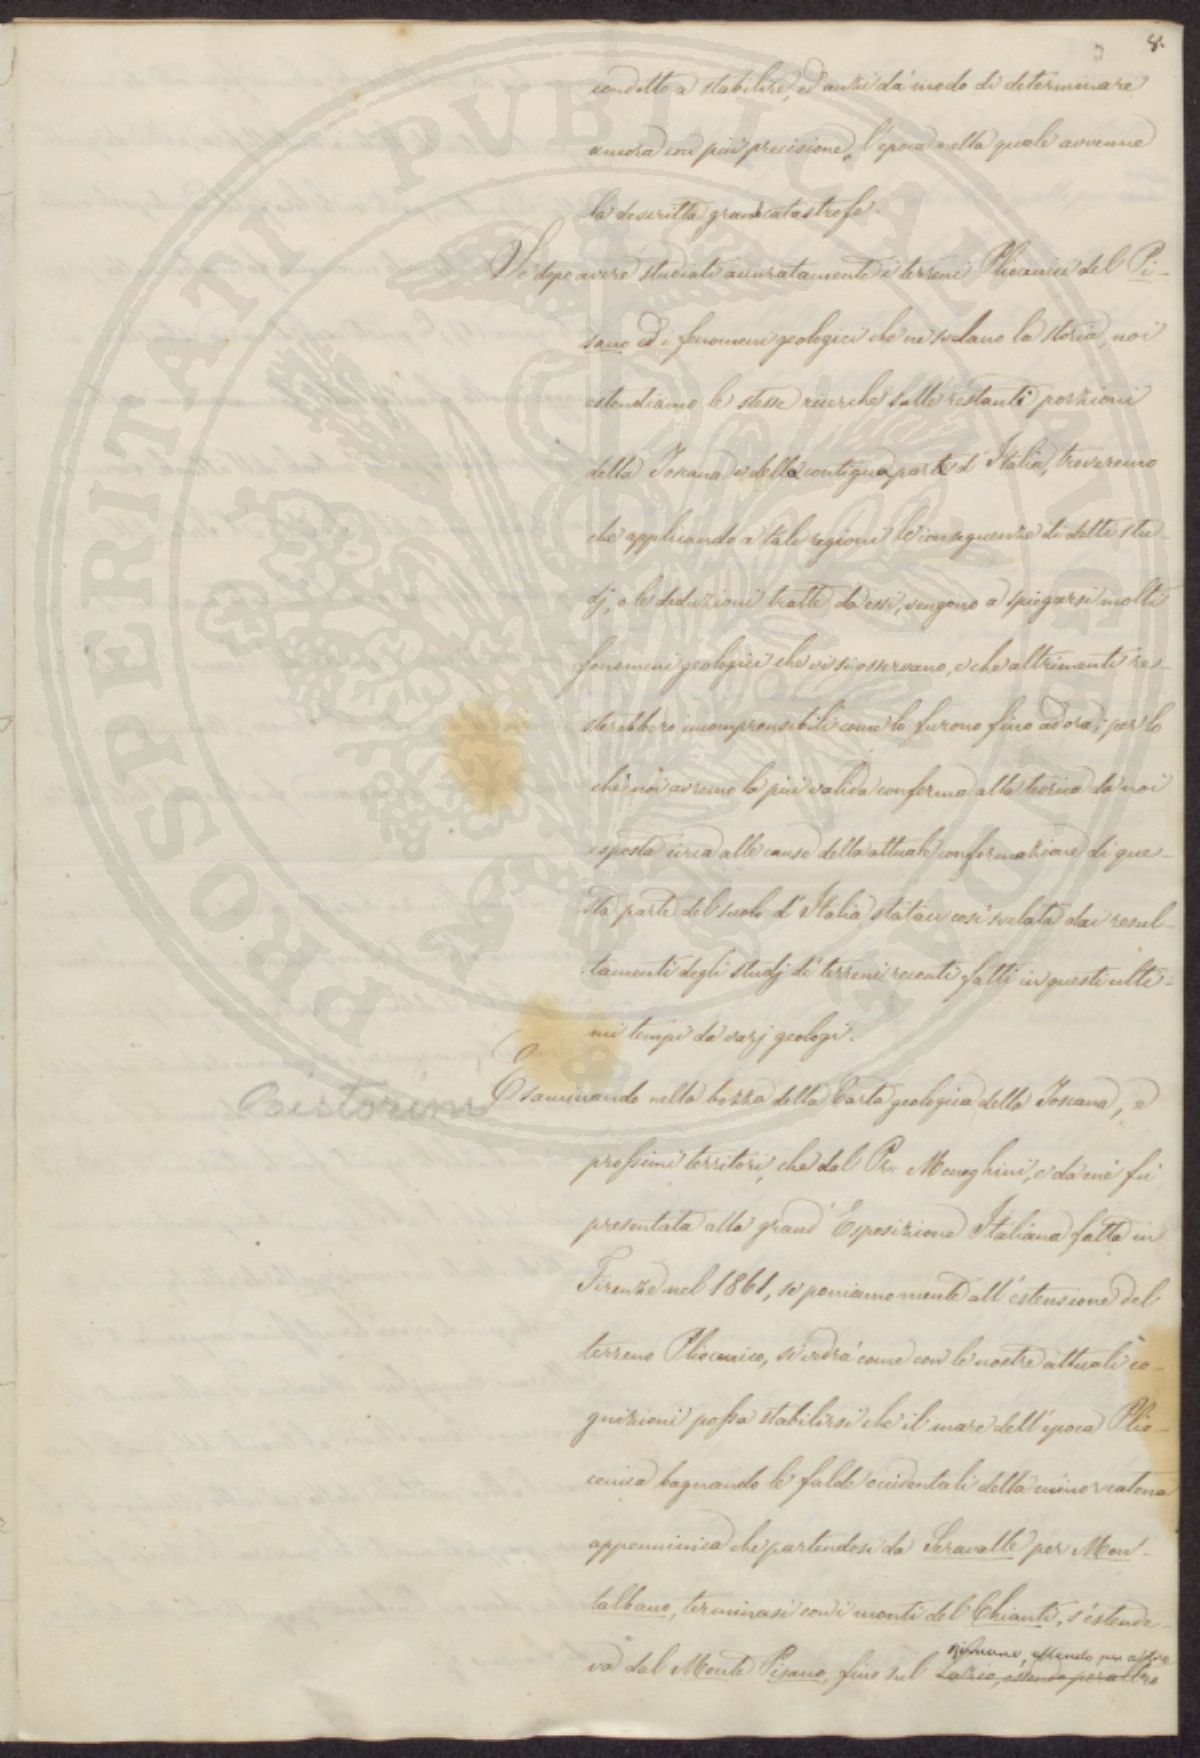 8.
condotto a stabilire, ed anzi dà modo di determinare
ancora con più precisione, l'epoca nella quale avvenne
la descritta gran catastrofe.
Se dopo avere studiati accuratamente i terreni Pliocenici del Pi-
sano ed i fenomeni geologici che ne svelano la storia, noi
estendiamo le stesse ricerche sulle restanti porzioni
della Toscana e della contigua parte d'Italia, troveremo
che applicando a tali regioni le conseguenze di detti stu-
dj, e le deduzioni tratte da essi, vengono a spiegarsi molti
fenomeni geologici che vi si osservano, e che altrimenti re-
sterebbero incomprensibili come lo furono fino ad ora; per lo
chè noi avremo la più valida conferma alla teorica da noi
esposta circa alle cause della attuale conformazione di que-
sta parte del suolo d'Italia, stataci così svelata dai resul-
tamenti degli studj di terreni recenti fatti in questi ulti-
mi tempi da varj geologi.
Esaminando nella bozza della Carta geologica della Toscana, e
prossimi territori, che dal Pr. Meneghini, e da me fu
presentata alla grand'Esposizione Italiana fatta in
Firenze nel 1861, se poniamo mente all'estensione del
terreno Pliocenico, si vedrà come con le nostre attuali co-
gnizioni possa stabilirsi che il mare dell'epoca Plio-
cenica bagnando le falde occidentali della minor catena
appenninica che partendosi da Seravalle per Mon-
talbano, terminasi con i monti del Chianti, s'estende-
va dal Monte Pisano, fino sul Lazio, essendo per altro
essendo per altro
PROSPERITATI PUBLICAE AUGENDAE